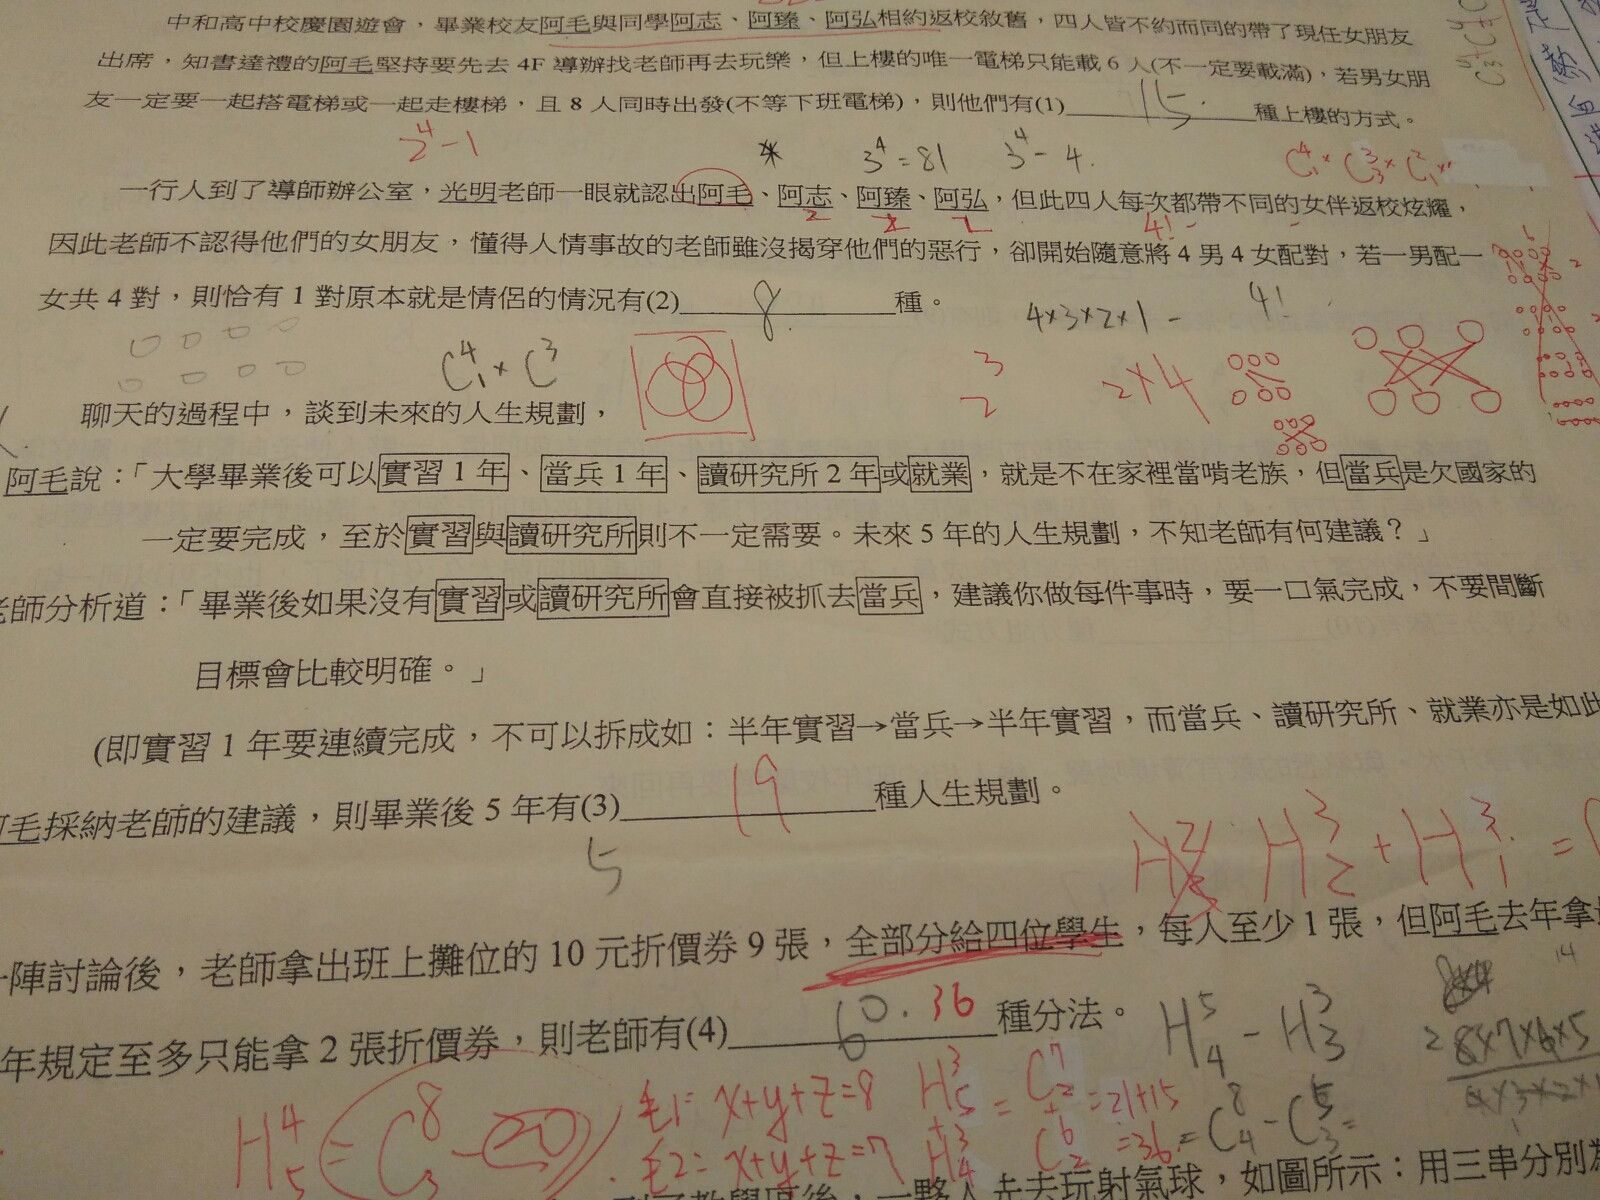 中和高中校慶園遊會，畢業校友阿毛與同學阿志、阿臻、阿弘相約返校敘舊，四人皆不約而同的帶了現任女朋友
出席，知書達禮的阿毛堅持要先去 4F 導辦找老師再去玩樂，但上樓的唯一電梯只能載 6 人(不一定要載滿)，若男女朋
友一定要一起搭電梯或一起走樓梯，且 8 人同時出發(不等下班電梯)，則他們有(1) 15. 種上樓的方式。
2⁴-1 * 3⁴=81 3⁴-4.
一行人到了導師辦公室，光明老師一眼就認出阿毛、阿志、阿臻、阿弘，但此四人每次都帶不同的女伴返校炫耀，
2 2 2 4!-
因此老師不認得他們的女朋友，懂得人情事故的老師雖沒揭穿他們的惡行，卻開始隨意將 4 男 4 女配對，若一男配一
女共 4 對，則恰有 1 對原本就是情侶的情況有(2) 8 種。
4×3×2×1- 4!
3
2 2×4
聊天的過程中，談到未來的人生規劃，
阿毛說：「大學畢業後可以實習 1 年、當兵 1 年、讀研究所 2 年或就業，就是不在家裡當啃老族，但當兵是欠國家的
一定要完成，至於實習與讀研究所則不一定需要。未來 5 年的人生規劃，不知老師有何建議？」
老師分析道：「畢業後如果沒有實習或讀研究所會直接被抓去當兵，建議你做每件事時，要一口氣完成，不要間斷
目標會比較明確。」
(即實習 1 年要連續完成，不可以拆成如：半年實習→當兵→半年實習，而當兵、讀研究所、就業亦是如此
阿毛採納老師的建議，則畢業後 5 年有(3) 19 種人生規劃。
5
一陣討論後，老師拿出班上攤位的 10 元折價券 9 張，全部分給四位學生，每人至少 1 張，但阿毛去年拿
年規定至多只能拿 2 張折價券，則老師有(4) 60. 36 種分法。
毛1= x+y+z=8
毛2= x+y+z=7
後，一夥人先去玩射氣球，如圖所示：用三串分別